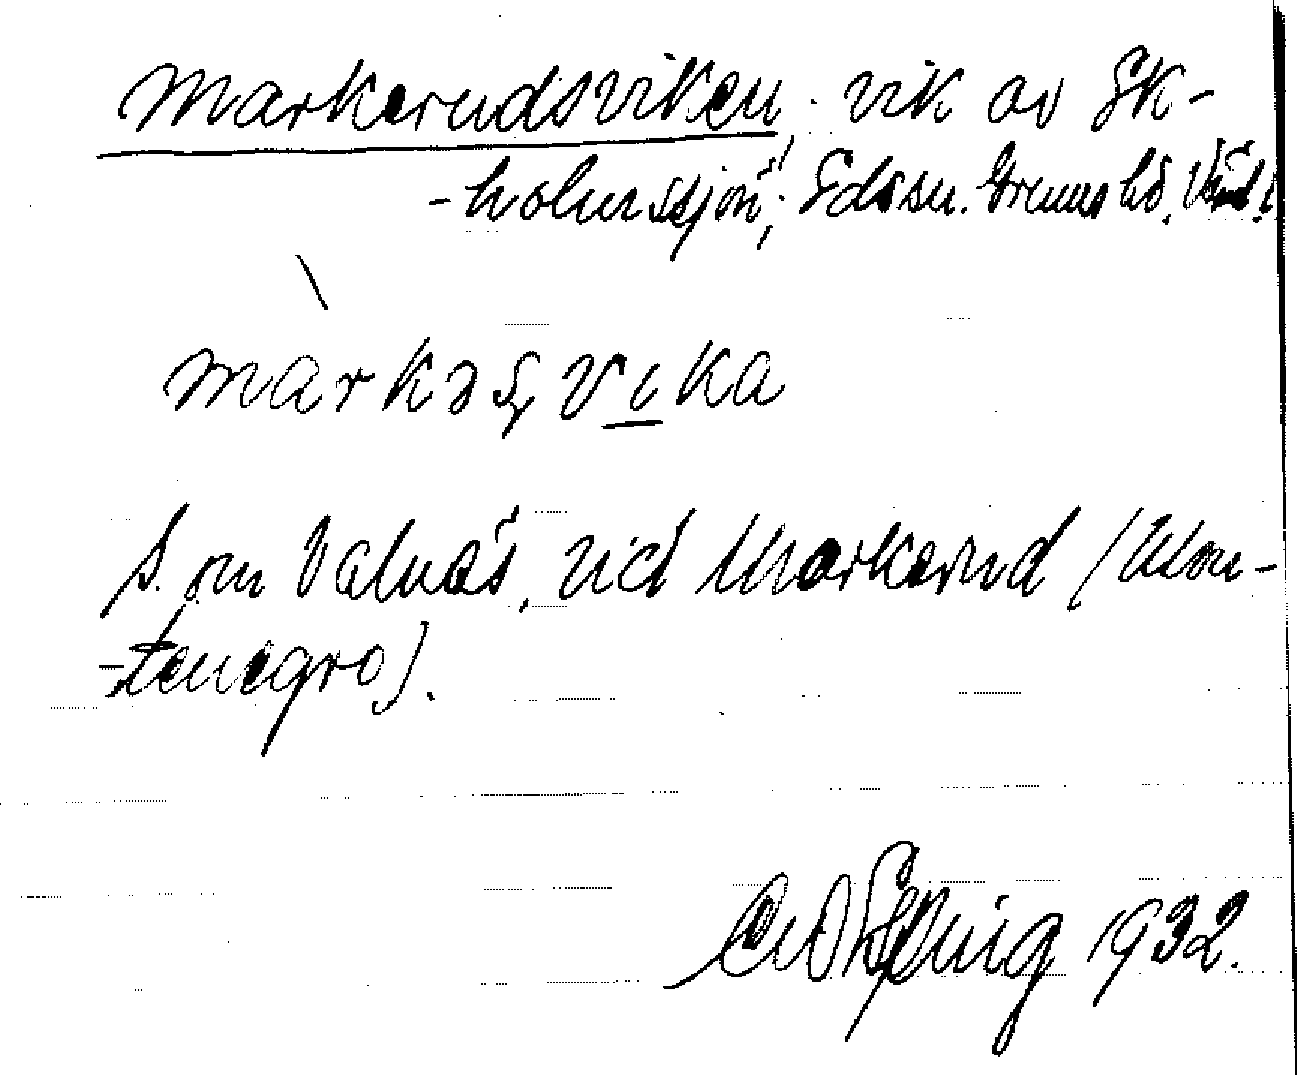 Markerudsviken, vik av Ek-
-holmssjön, Eds sn. Grums hd, Värml.
màrkəʂvika
S. om Valnäs, vid Markerud (Mon-
-tenegro).
1932.